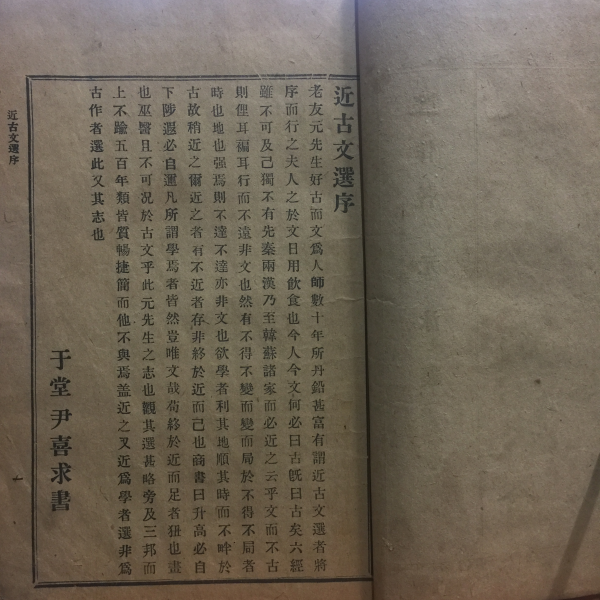 近古文選序
老友元先生好古而文爲人師數十年所丹鉛甚富有謂近古文選者將
序而行之夫人之於文日用飮食也今人今文何必曰古旣曰古矣六經
雖不可及已獨不有先秦兩漢乃至韓蘇諸家而必近之云乎文而不古
則俚耳褊耳行而不遠非文也然有不得不變而變而局於不得不局者
時也地也强焉則不達不達亦非文也欲學者利其地順其時而不畔於
古故稍近之爾近之者有不近者存非終於近而已也商書曰升高必自
下陟遐必自邇凡所謂學焉者皆然豈唯文哉苟終於近而足者狃也畫
也巫醫且不可況於古文乎此元先生之志也觀其選甚略旁及三邦而
上不踰五百年類皆質暢捷簡而他不與焉盖近之又近爲學者選非爲
古作者選此又其志也
于堂尹喜求書
近古文選序